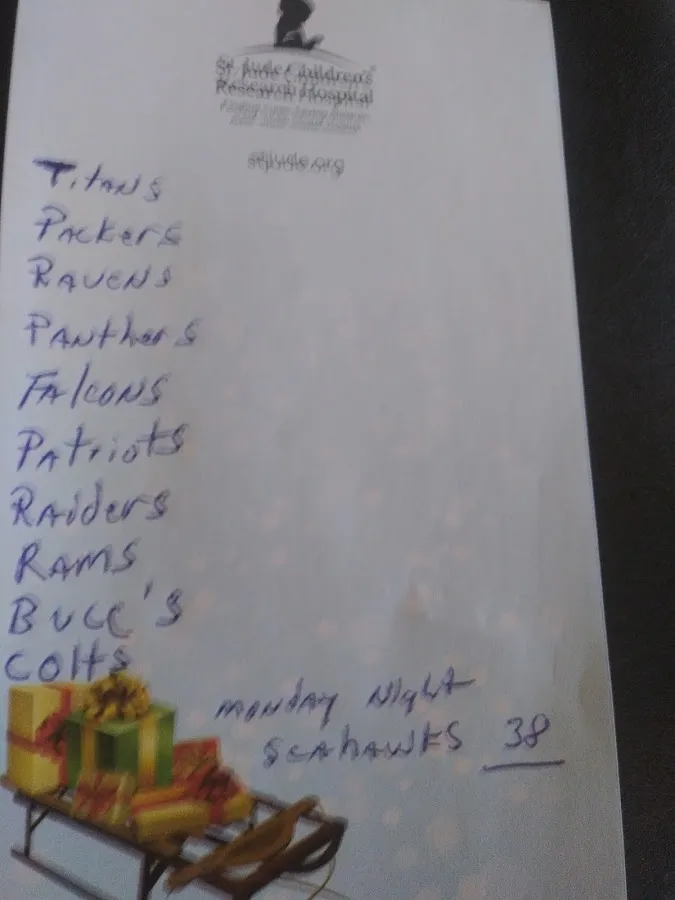 St. Jude Children's
Research Hospital
stjude.org
Titans
Packers
Ravens
Panthers
Falcons
Patriots
Raiders
Rams
Bucc's
Colts
Monday Night
Seahawks 38